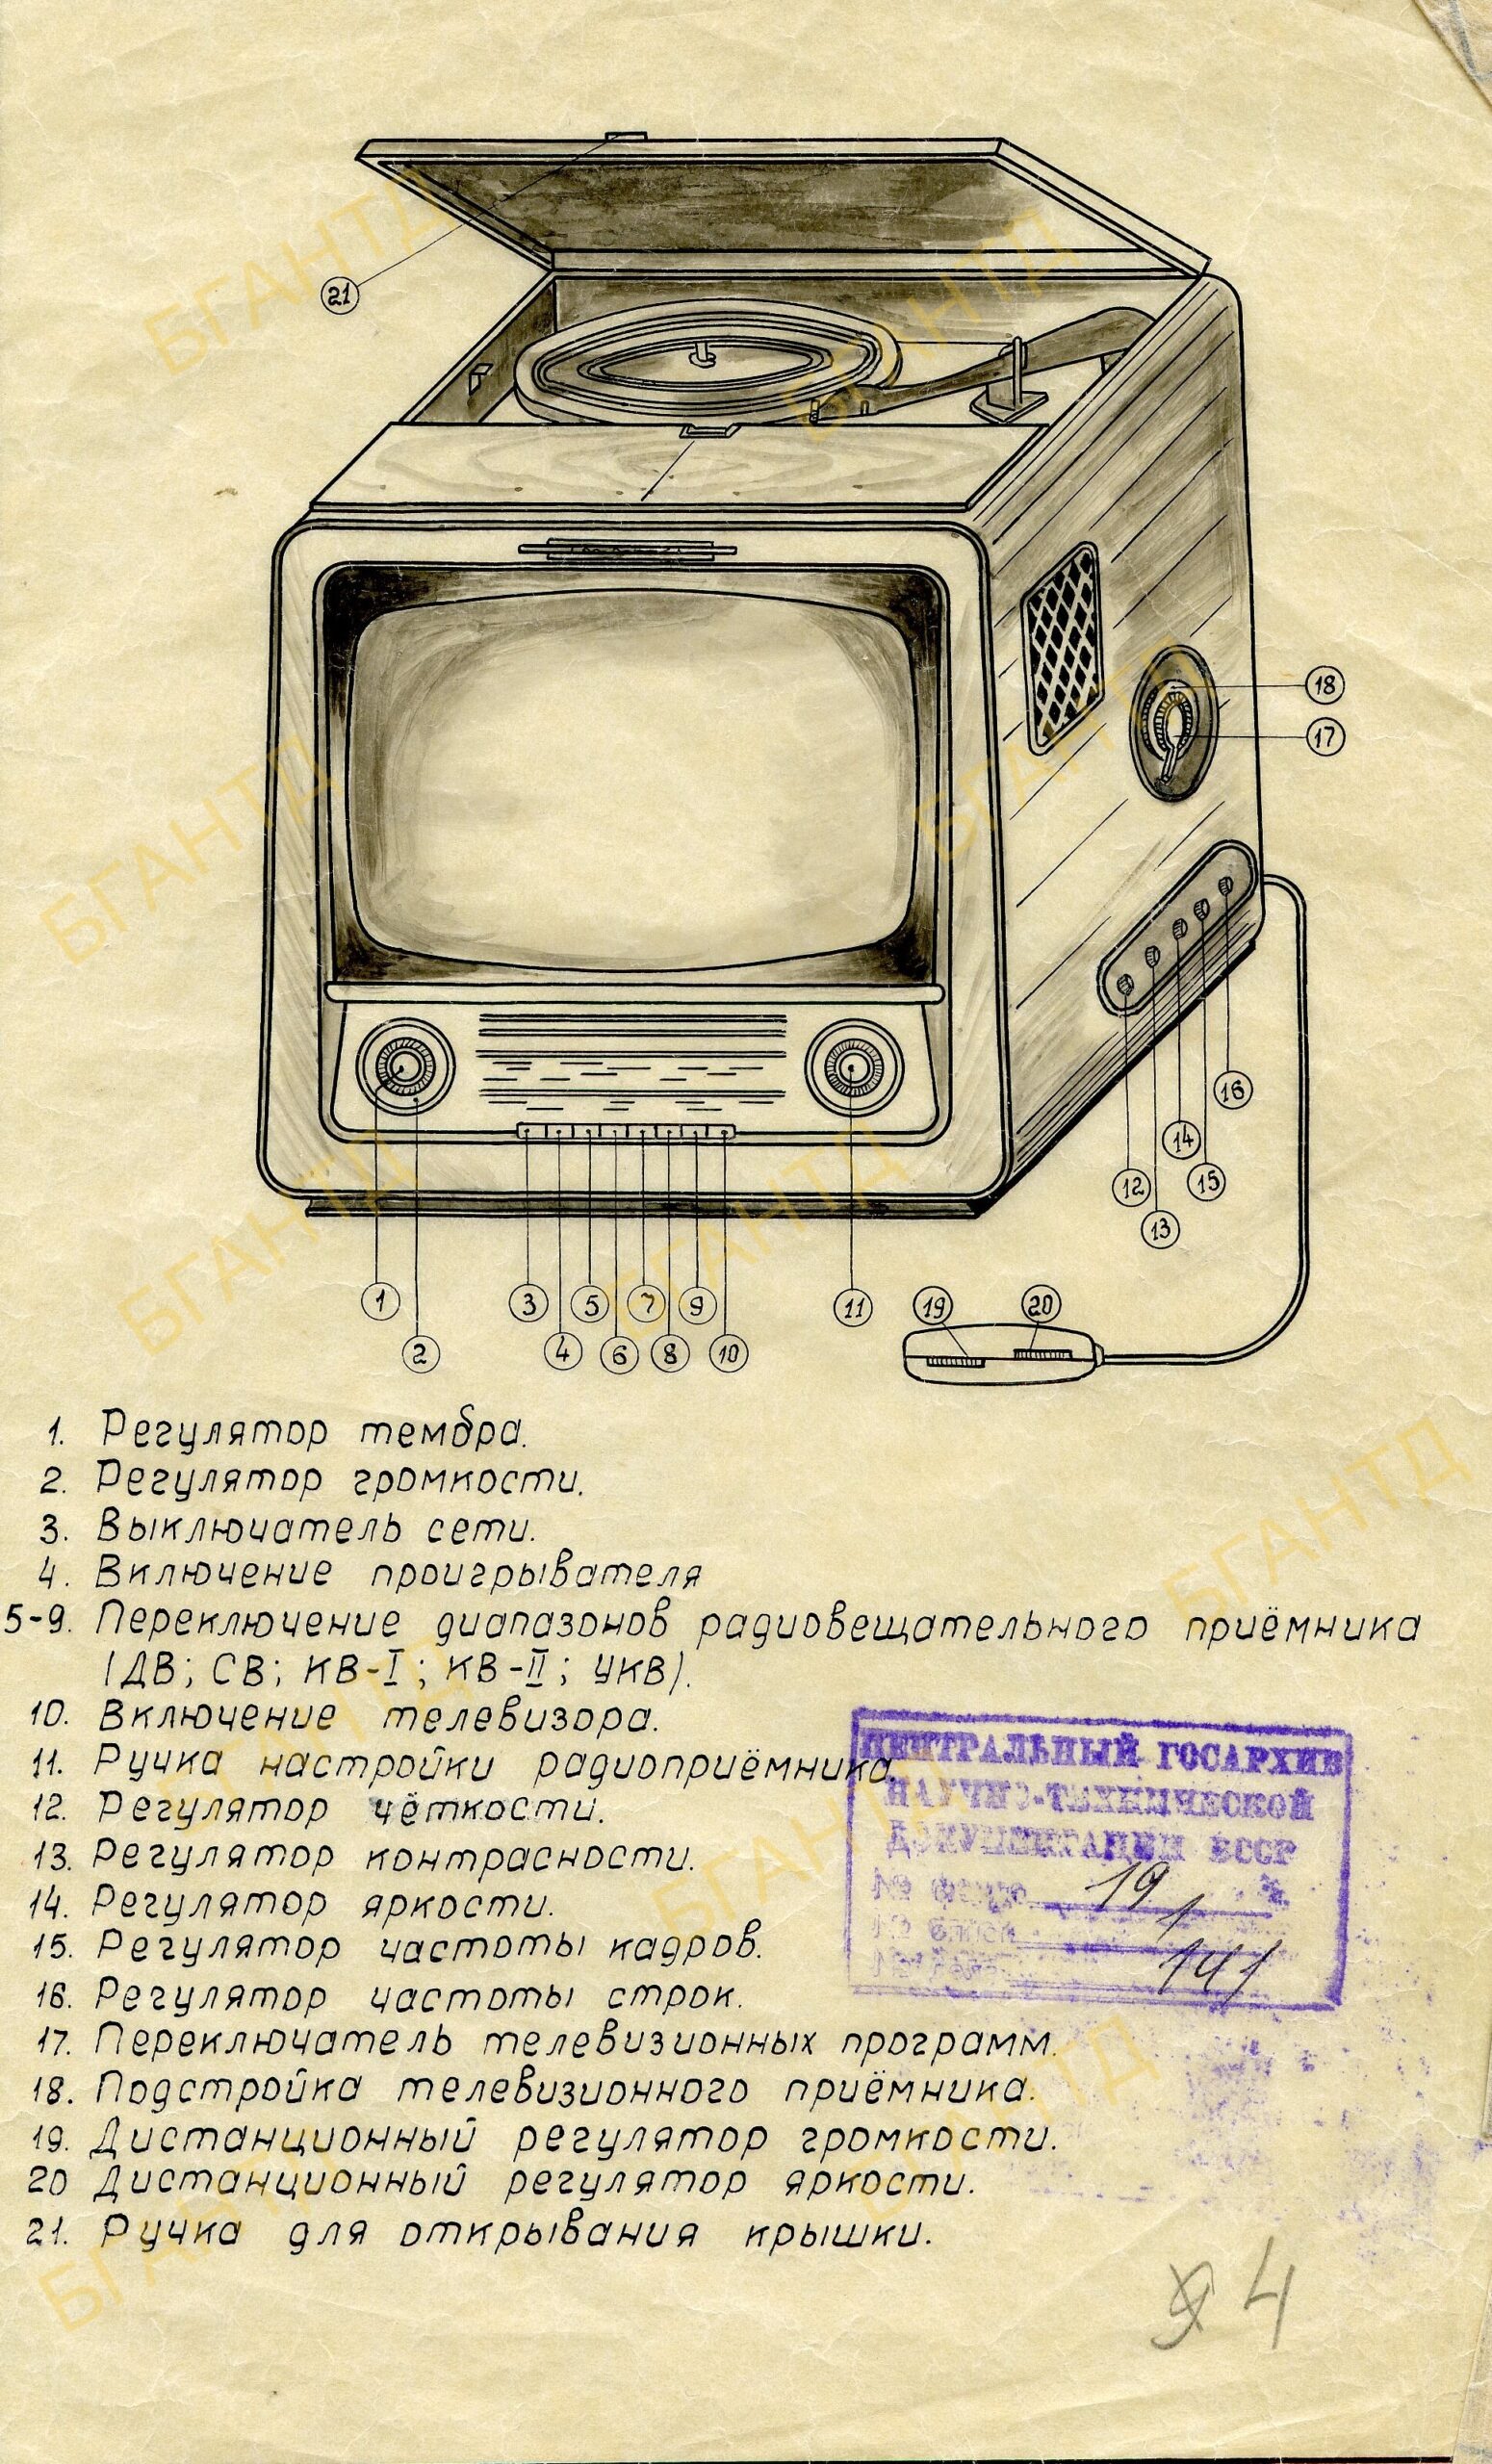 21
18
17
16
14
12
15
13
1
3
5
7
9
11
19
20
2
4
6
8
10
1. Регулятор тембра.
2. Регулятор громкости.
3. Выключатель сети.
4. Включение проигрывателя
5-9. Переключение диапазонов радиовещательного приёмника
(ДВ; СВ; КВ-I; КВ-II; УКВ).
10. Включение телевизора.
11. Ручка настройки радиоприёмника.
12. Регулятор чёткости.
13. Регулятор контрасности.
14. Регулятор яркости.
15. Регулятор частоты кадров.
16. Регулятор частоты строк.
17. Переключатель телевизионных программ.
18. Подстройка телевизионного приёмника.
19. Дистанционный регулятор громкости.
20 Дистанционный регулятор яркости.
21. Ручка для открывания крышки.
ЦЕНТРАЛЬНЫЙ ГОСАРХИВ
НАУЧНО-ТЕХНИЧЕСКОЙ
ДОКУМЕНТАЦИИ БССР
№ фонда 19
№ описи 1
141
4
БГАНТД
БГАНТД
БГАНТД
БГАНТД
БГАНТД
БГАНТД
БГАНТД
БГАНТД
БГАНТД
БГАНТД
БГАНТД